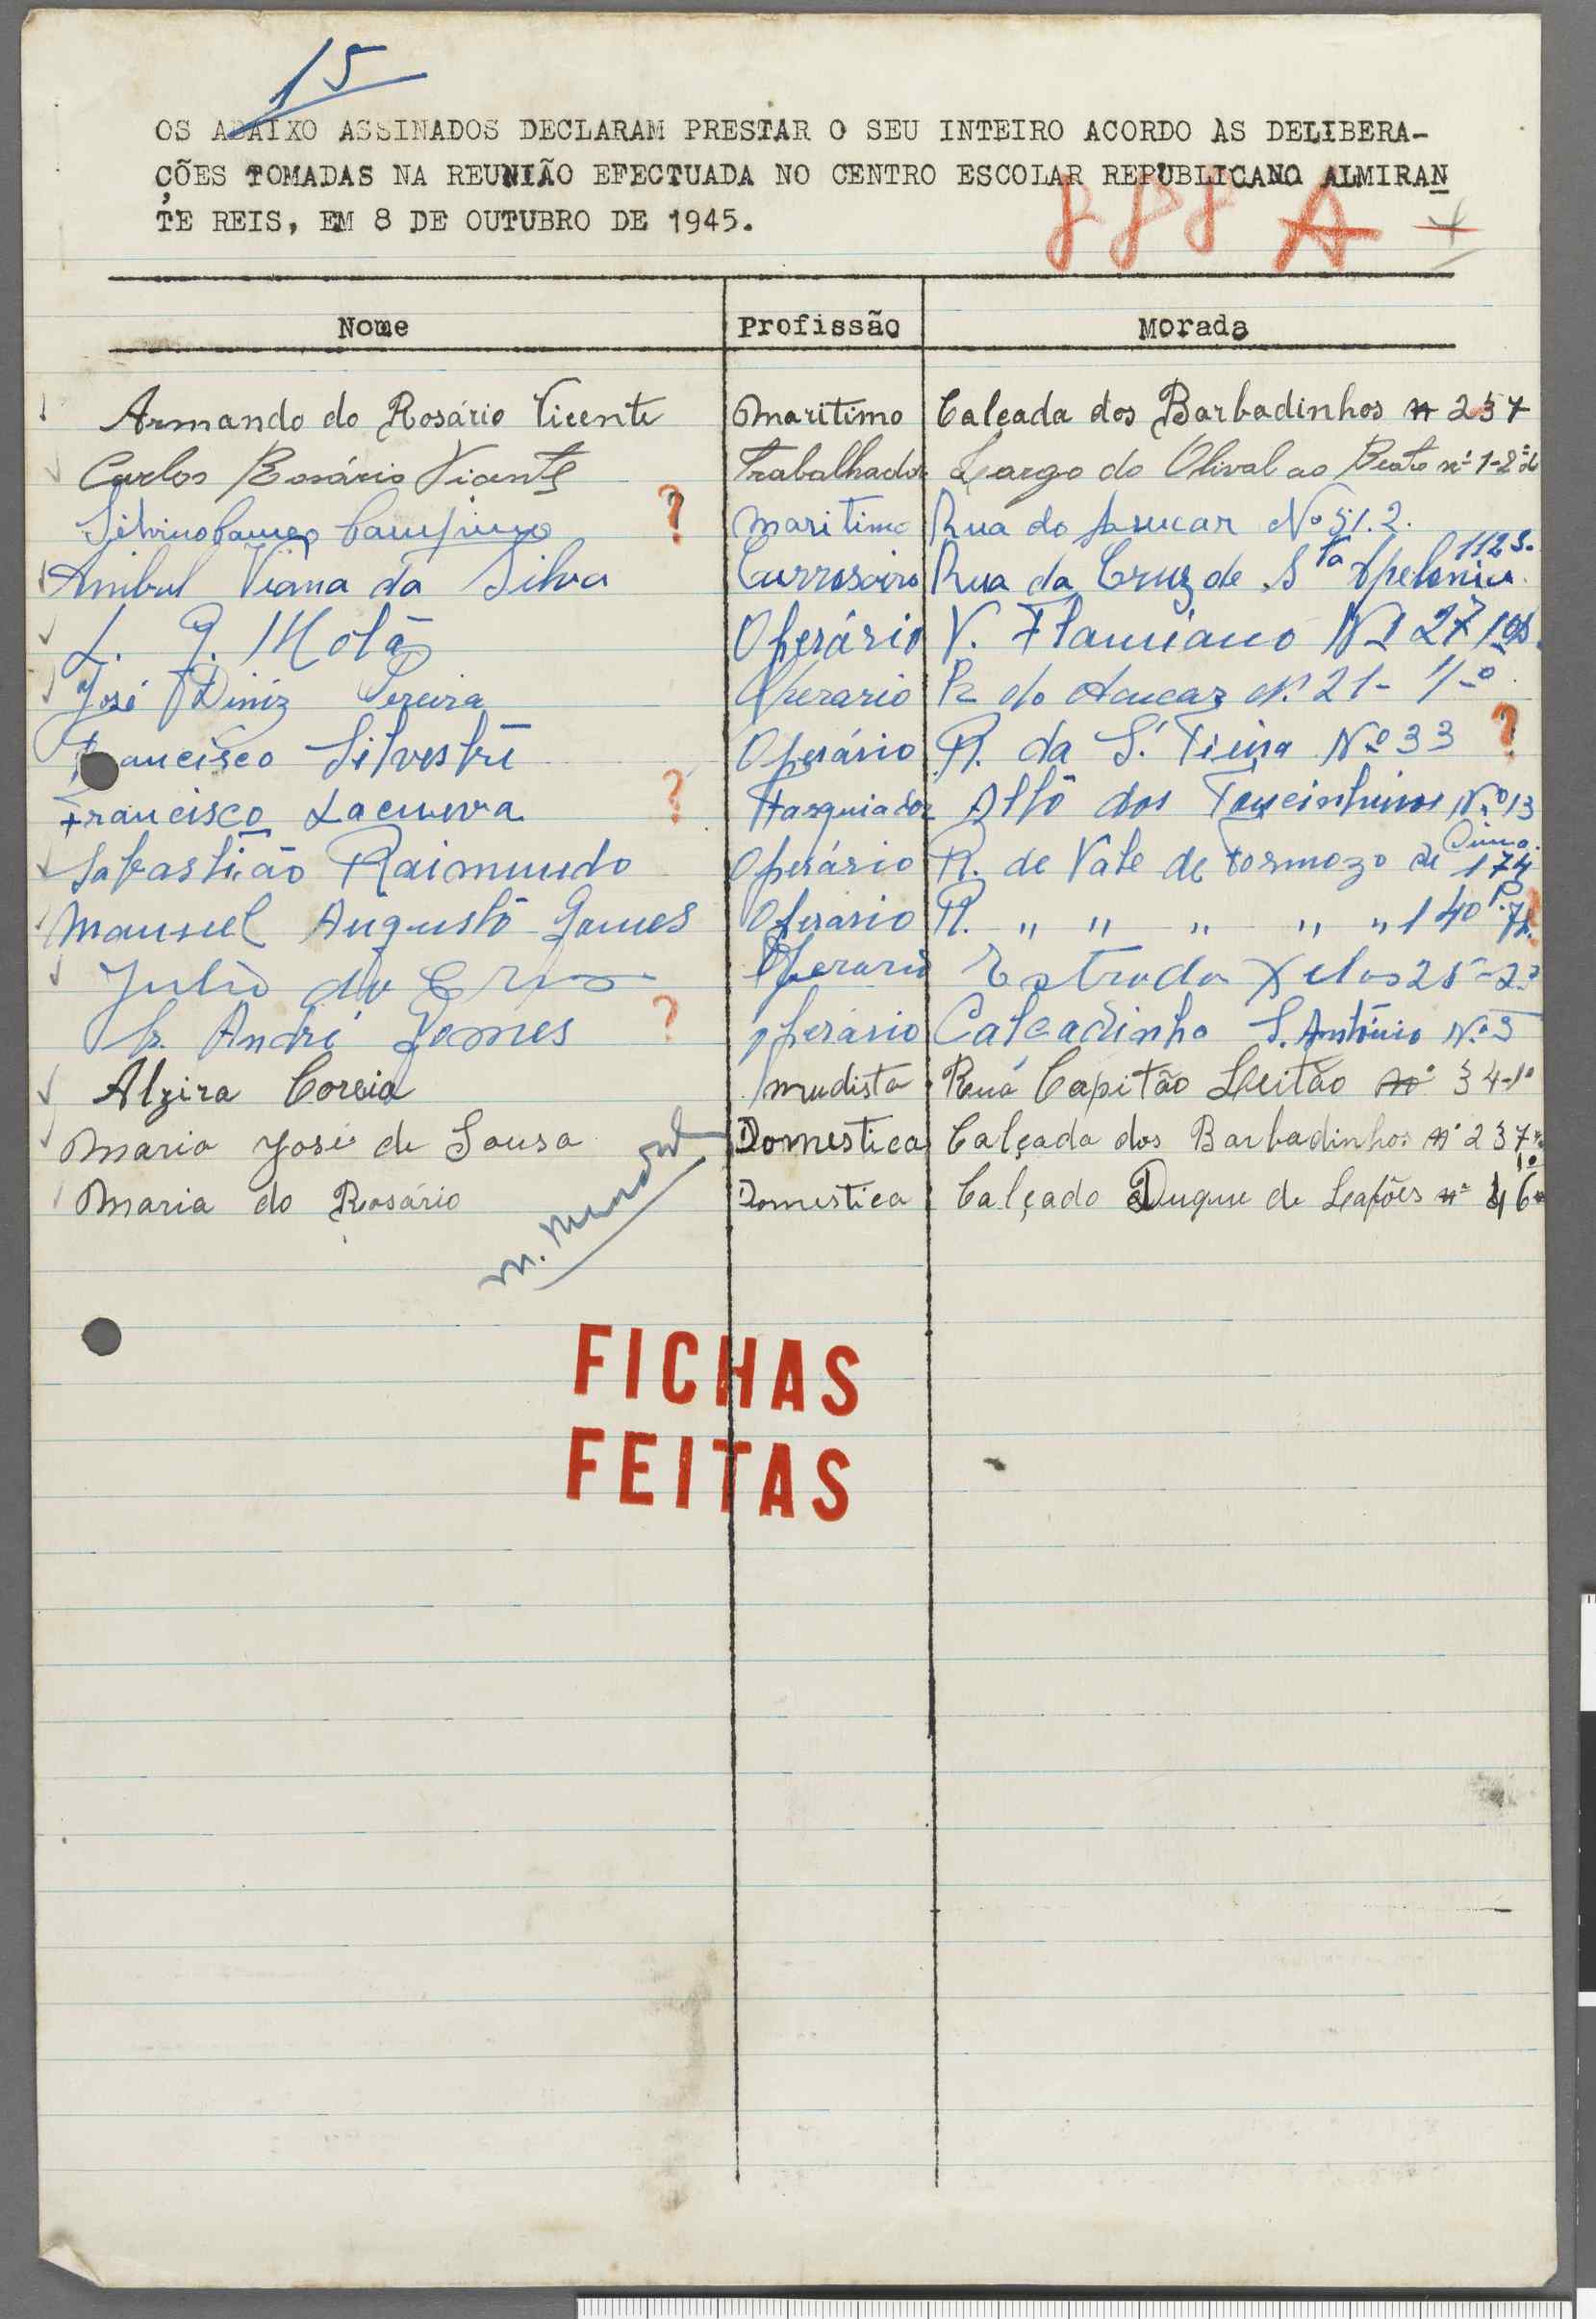 15
OS ABAIXO ASSINADOS DECLARAM PRESTAR O SEU INTEIRO ACORDO AS DELIBERA-
ÇÕES TOMADAS NA REUNIÃO EFECTUADA NO CENTRO ESCOLAR REPUBLICANO ALMIRAN
TE REIS, EM 8 DE OUTUBRO DE 1945.
A
Nome Profissão Morada
Armando do Rosário Vicente Maritimo Calçada dos Barbadinhos nº 237
Carlos Rosário Vicente Trabalhador Largo do Olival ao Beato nº 1-2º
Silvino ? maritimo Rua do Assucar Nº 51.2.
Anibal Viana da Silva Rua da Cruz de Sta Apelonia 112
Mota Operário V. Flamiano Nº 27
José Diniz Pereira Operario R do Acucar Nº 21-1º
Francisco Silvestre Operário R. da Nº 33 ?
Francisco Lacueva ? Alto dos Toucinheiros Nº 13
Sebastião Raimundo Operário R. de Vale de Formozo de Cima 174
Manuel Augusto Gomes Operario R. " " " " " 140
Julio da Cruz Operario Estrada Xelas 25-2º
André Gomes ? operário Calcadinha S. António Nº 5
Alzira Correia mudista Rua Capitão Leitão nº 34-1º
Maria José de Sousa Domestica Calçada dos Barbadinhos nº 237
Maria do Rosário Domestica Calçada Duque de Lafões nº 46
FICHAS
FEITAS